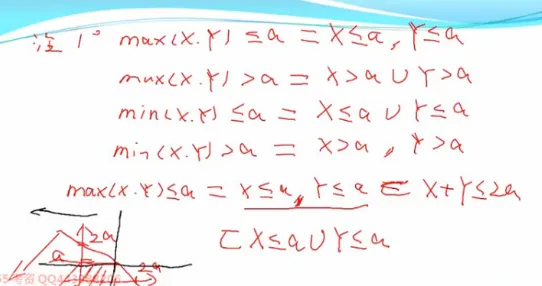 注 1° max(X.Y) ≤a = X≤a, Y≤a
max(X.Y) >a = X>a ∪ Y>a
min(X.Y) ≤a = X≤a ∪ Y≤a
min(X.Y) >a = X>a , Y>a
max(X.Y)≤a = X≤a, Y≤a ⊂ X+Y≤2a
⊂ X≤a ∪ Y≤a
2a
a
2a
考资 QQ4